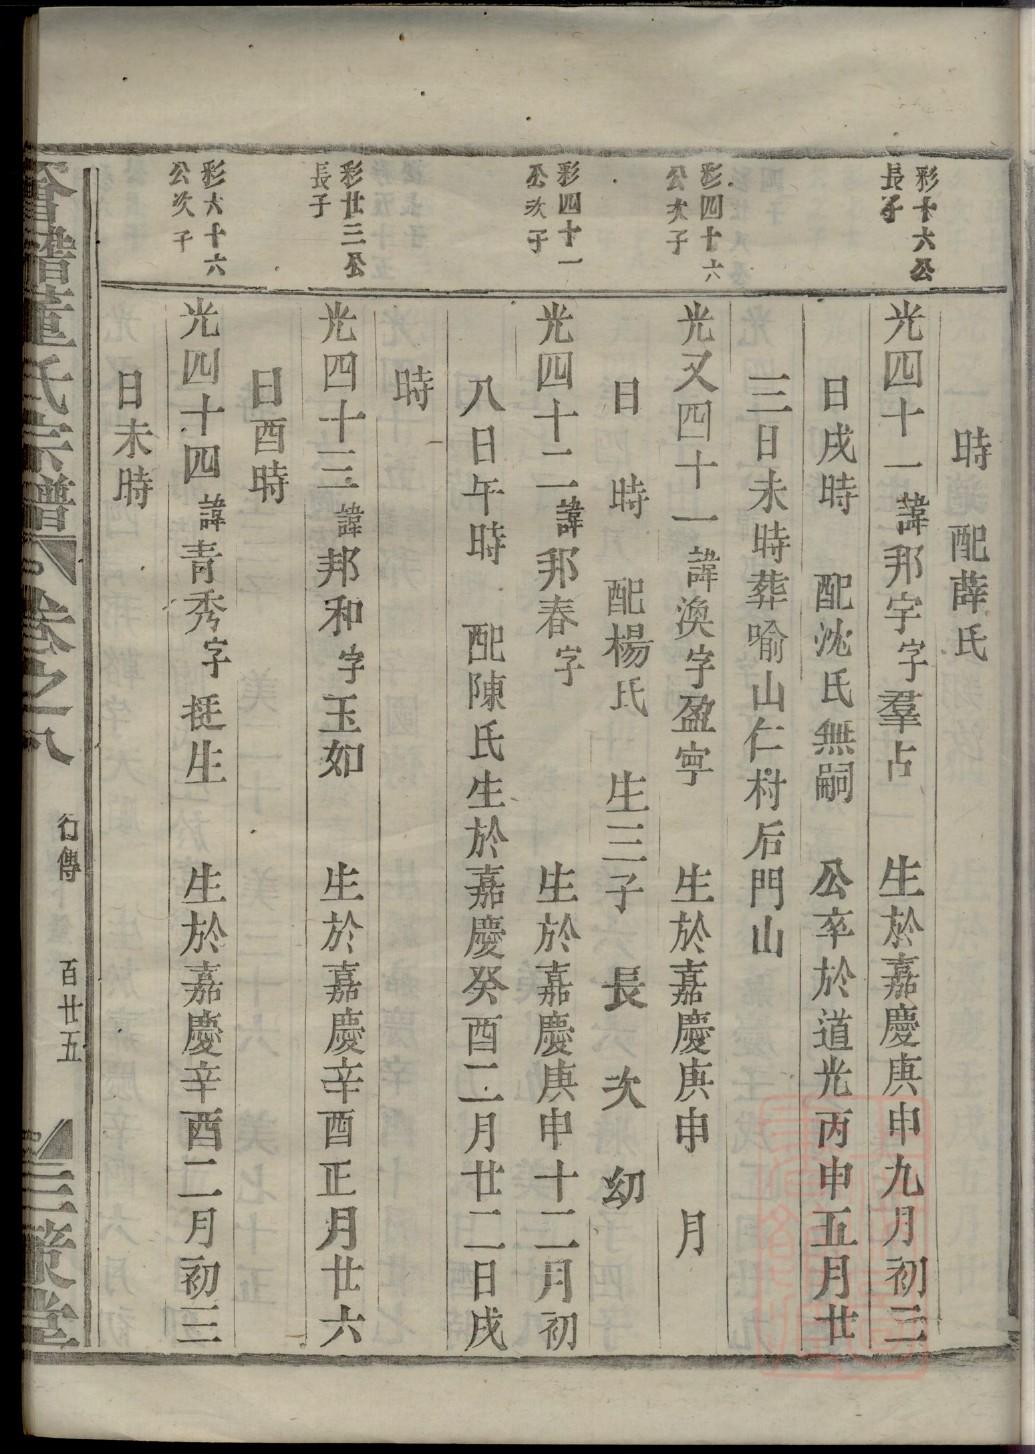 時　配薛氏
彩十六公
長子
光四十一諱邦宇字羣占　生於嘉慶庚申九月初三
日戌時　配沈氏無嗣　公卒於道光丙申五月廿
三日未時葬喻山仁村后門山
彩四十六
公次子
光又四十一諱渙字盈寧　生於嘉慶庚申　月
日　時　配楊氏　生三子　長　次　幼
彩四十一
公次子
光四十二諱邦春字　生於嘉慶庚申十二月初
八日午時　配陳氏生於嘉慶癸酉二月廿二日戌
時
彩廿三公
長子
光四十三諱邦和字玉如　生於嘉慶辛酉正月廿六
日酉時
彩六十六
公次子
光四十四諱青秀字挺生　生於嘉慶辛酉二月初三
日未時
董氏宗譜　卷之八　行傳　百廿五　三策堂